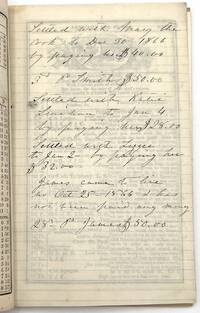 Settled with Mary the
Cook to Dec 30 1866
by paying her $40.00
Pd Smith $50.00
Settled with Katie
to Jan 4
by paying her $28.00
Settled with Lizzie
to Jan 2 by paying her
$32.00
James came to live
Oct 25th 1866 & has
not been paid any money
28th Pd James $50.00